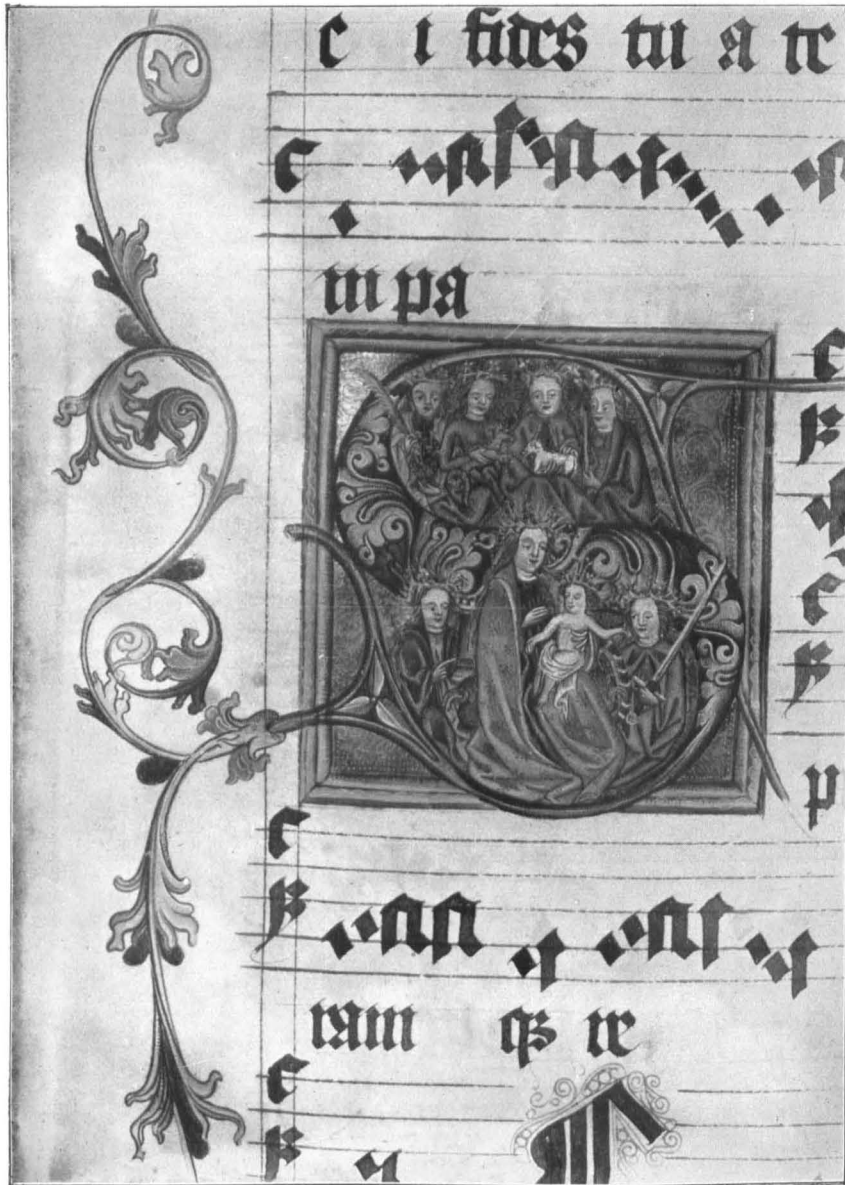 c i fides tu a te
in pa
S
p
ram qs te